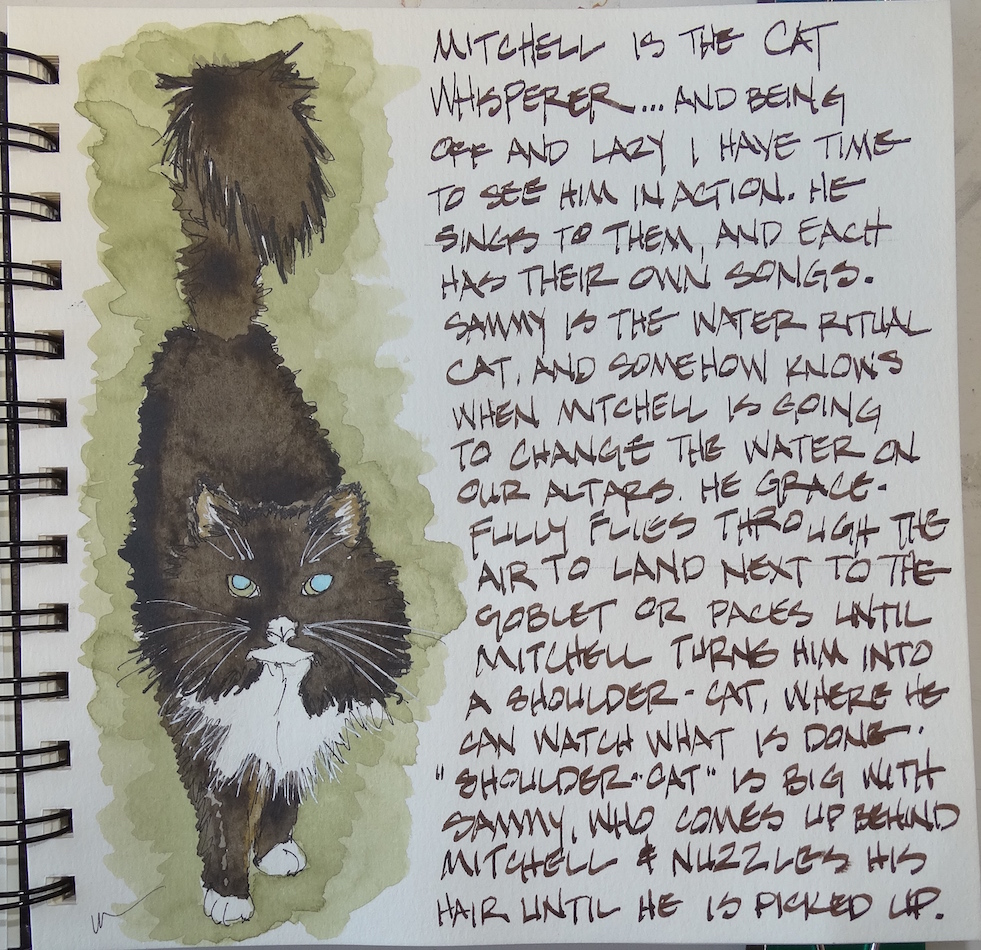 MITCHELL IS THE CAT
WHISPERER... AND BEING
OFF AND LAZY I HAVE TIME
TO SEE HIM IN ACTION. HE
SINGS TO THEM, AND EACH
HAS THEIR OWN SONGS.
SAMMY IS THE WATER RITUAL
CAT, AND SOMEHOW KNOWS
WHEN MITCHELL IS GOING
TO CHANGE THE WATER ON
OUR ALTARS. HE GRACE-
FULLY FLIES THROUGH THE
AIR TO LAND NEXT TO THE
GOBLET OR PACES UNTIL
MITCHELL TURNS HIM INTO
A SHOULDER-CAT, WHERE HE
CAN WATCH WHAT IS DONE.
"SHOULDER-CAT" IS BIG WITH
SAMMY, WHO COMES UP BEHIND
MITCHELL & NUZZLES HIS
HAIR UNTIL HE IS PICKED UP.